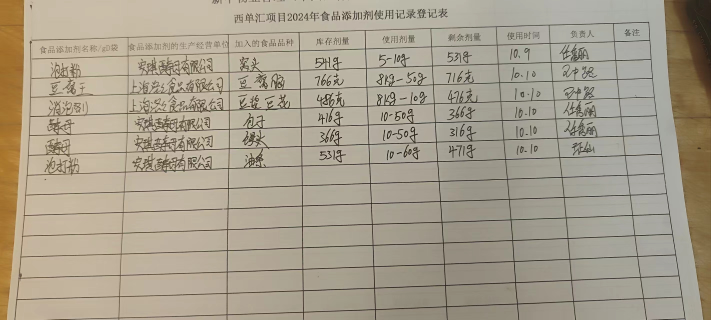 西单汇项目2024年食品添加剂使用记录登记表
食品添加剂名称/g/袋 食品添加剂的生产经营单位 加入的食品品种 库存剂量 使用剂量 剩余剂量 使用时间 负责人 备注
泡打粉 安琪酵母有限公司 窝头 541g 5-10g 531g 10.9
豆腐王 食品有限公司 豆腐脑 766克 8kg-50g 716克 10.10
消泡剂 食品有限公司 豆浆豆花 486克 8kg-10g 476克 10.10
酵母 安琪酵母有限公司 包子 416g 10-50g 366g 10.10
酵母 安琪酵母有限公司 馒头 366g 10-50g 316g 10.10
泡打粉 安琪酵母有限公司 油条 531g 10-60g 471g 10.10